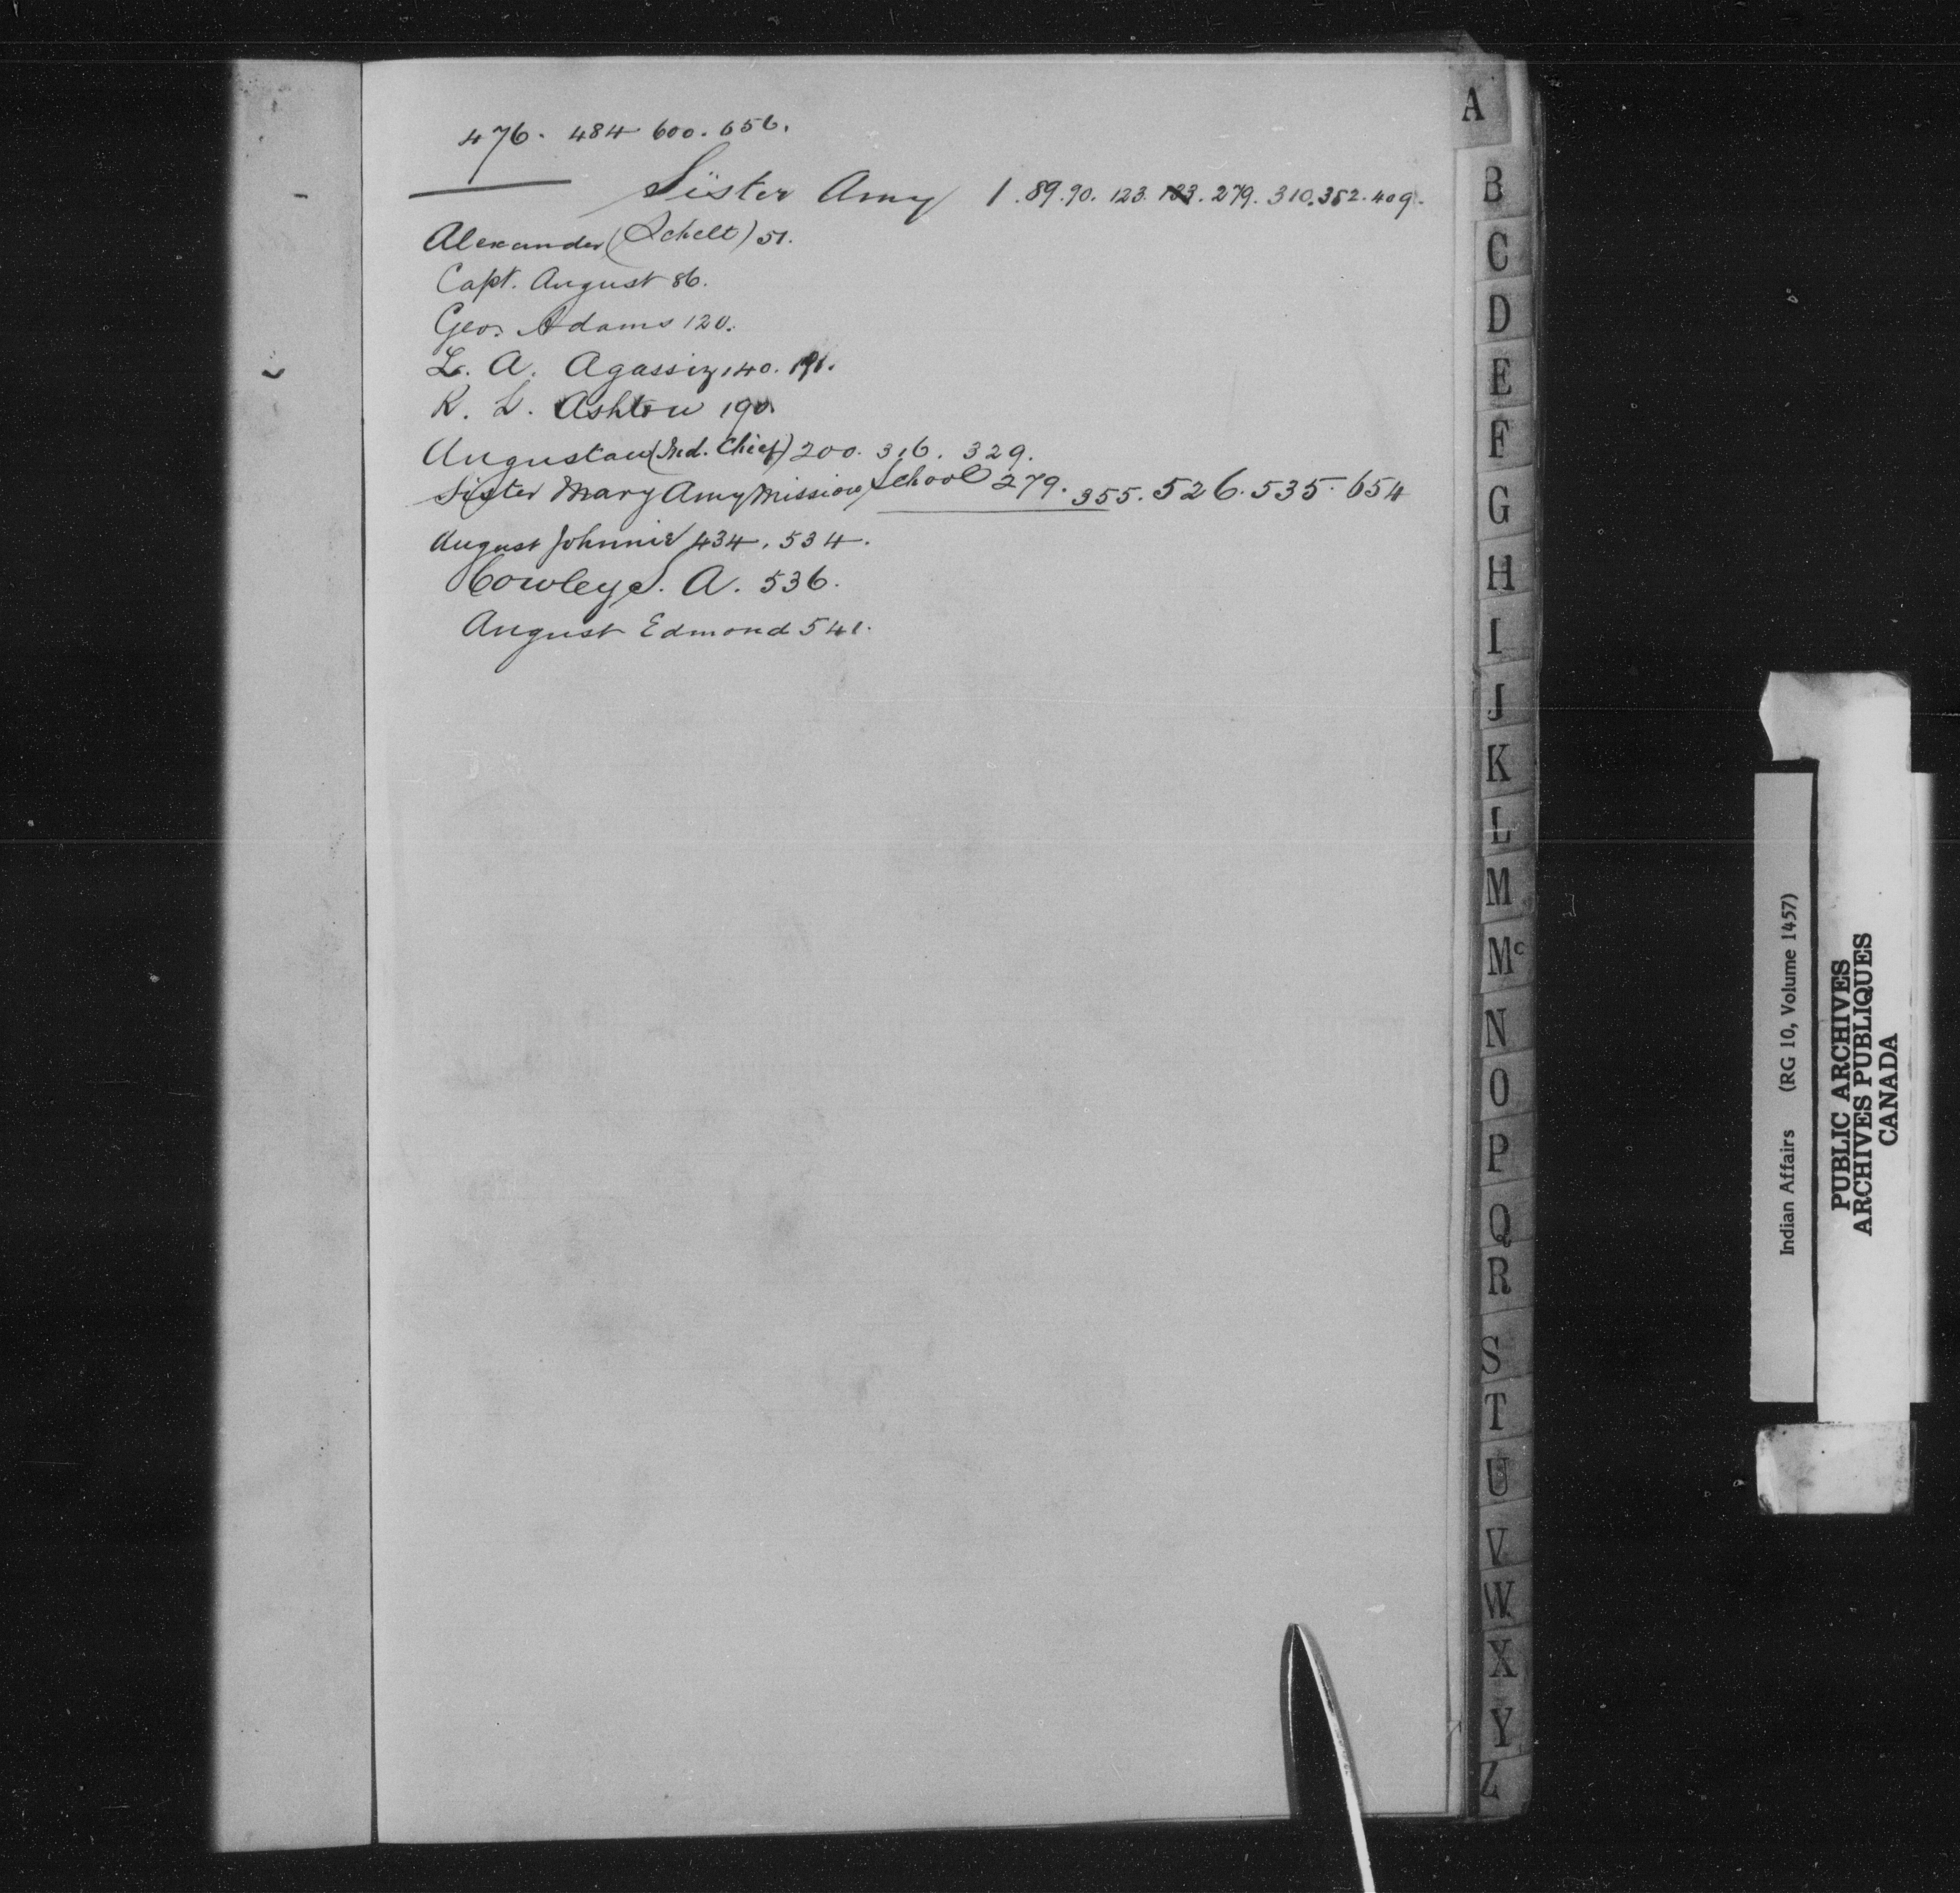 476. 484 600. 656.
Sister Amy 1. 89. 90. 123. 133. 279. 310. 352. 409.
Alexander (Schelt) 51.
Capt. August 86.
Geo. Adams 120.
L. A. Agassiz 140. 191.
R. L. Ashton 190
Augustan (Ind. Chief) 200. 316. 329.
Sister Mary Amy Mission School 279. 355. 526. 535. 654
August Johnnie 434. 534.
Cowley S. A. 536.
August Edmond 541.
A
B
C
D
E
F
G
H
I
J
K
L
M
Mc
N
O
P
Q
R
S
T
U
V
W
X
Y
Z
Indian Affairs (RG 10, Volume 1457)
PUBLIC ARCHIVES
ARCHIVES PUBLIQUES
CANADA